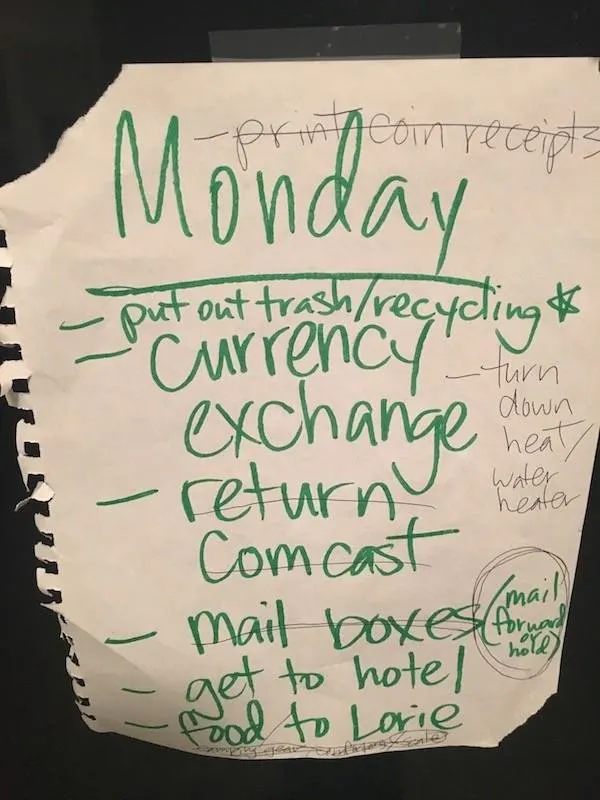 - print coin receipts
Monday
- put out trash/recycling
- Currency
exchange
- turn
down
heat/
water
heater
- return
Comcast
- mail boxes (mail
forward
or
hold)
- get to hotel
- food to Lorie
camping gear,